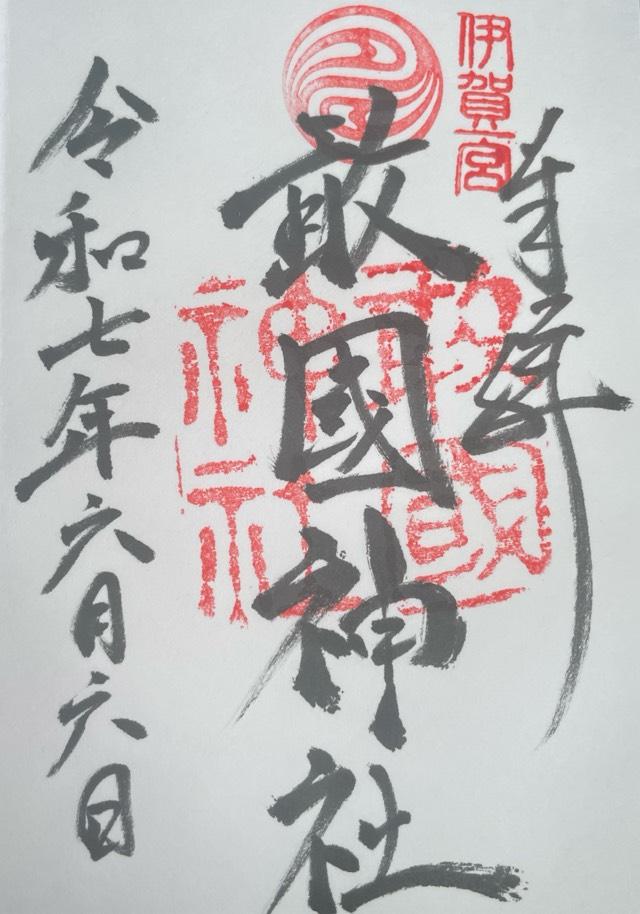 奉拝
伊賀一宮
敢國神社
敢國
神社
令和七年六月六日